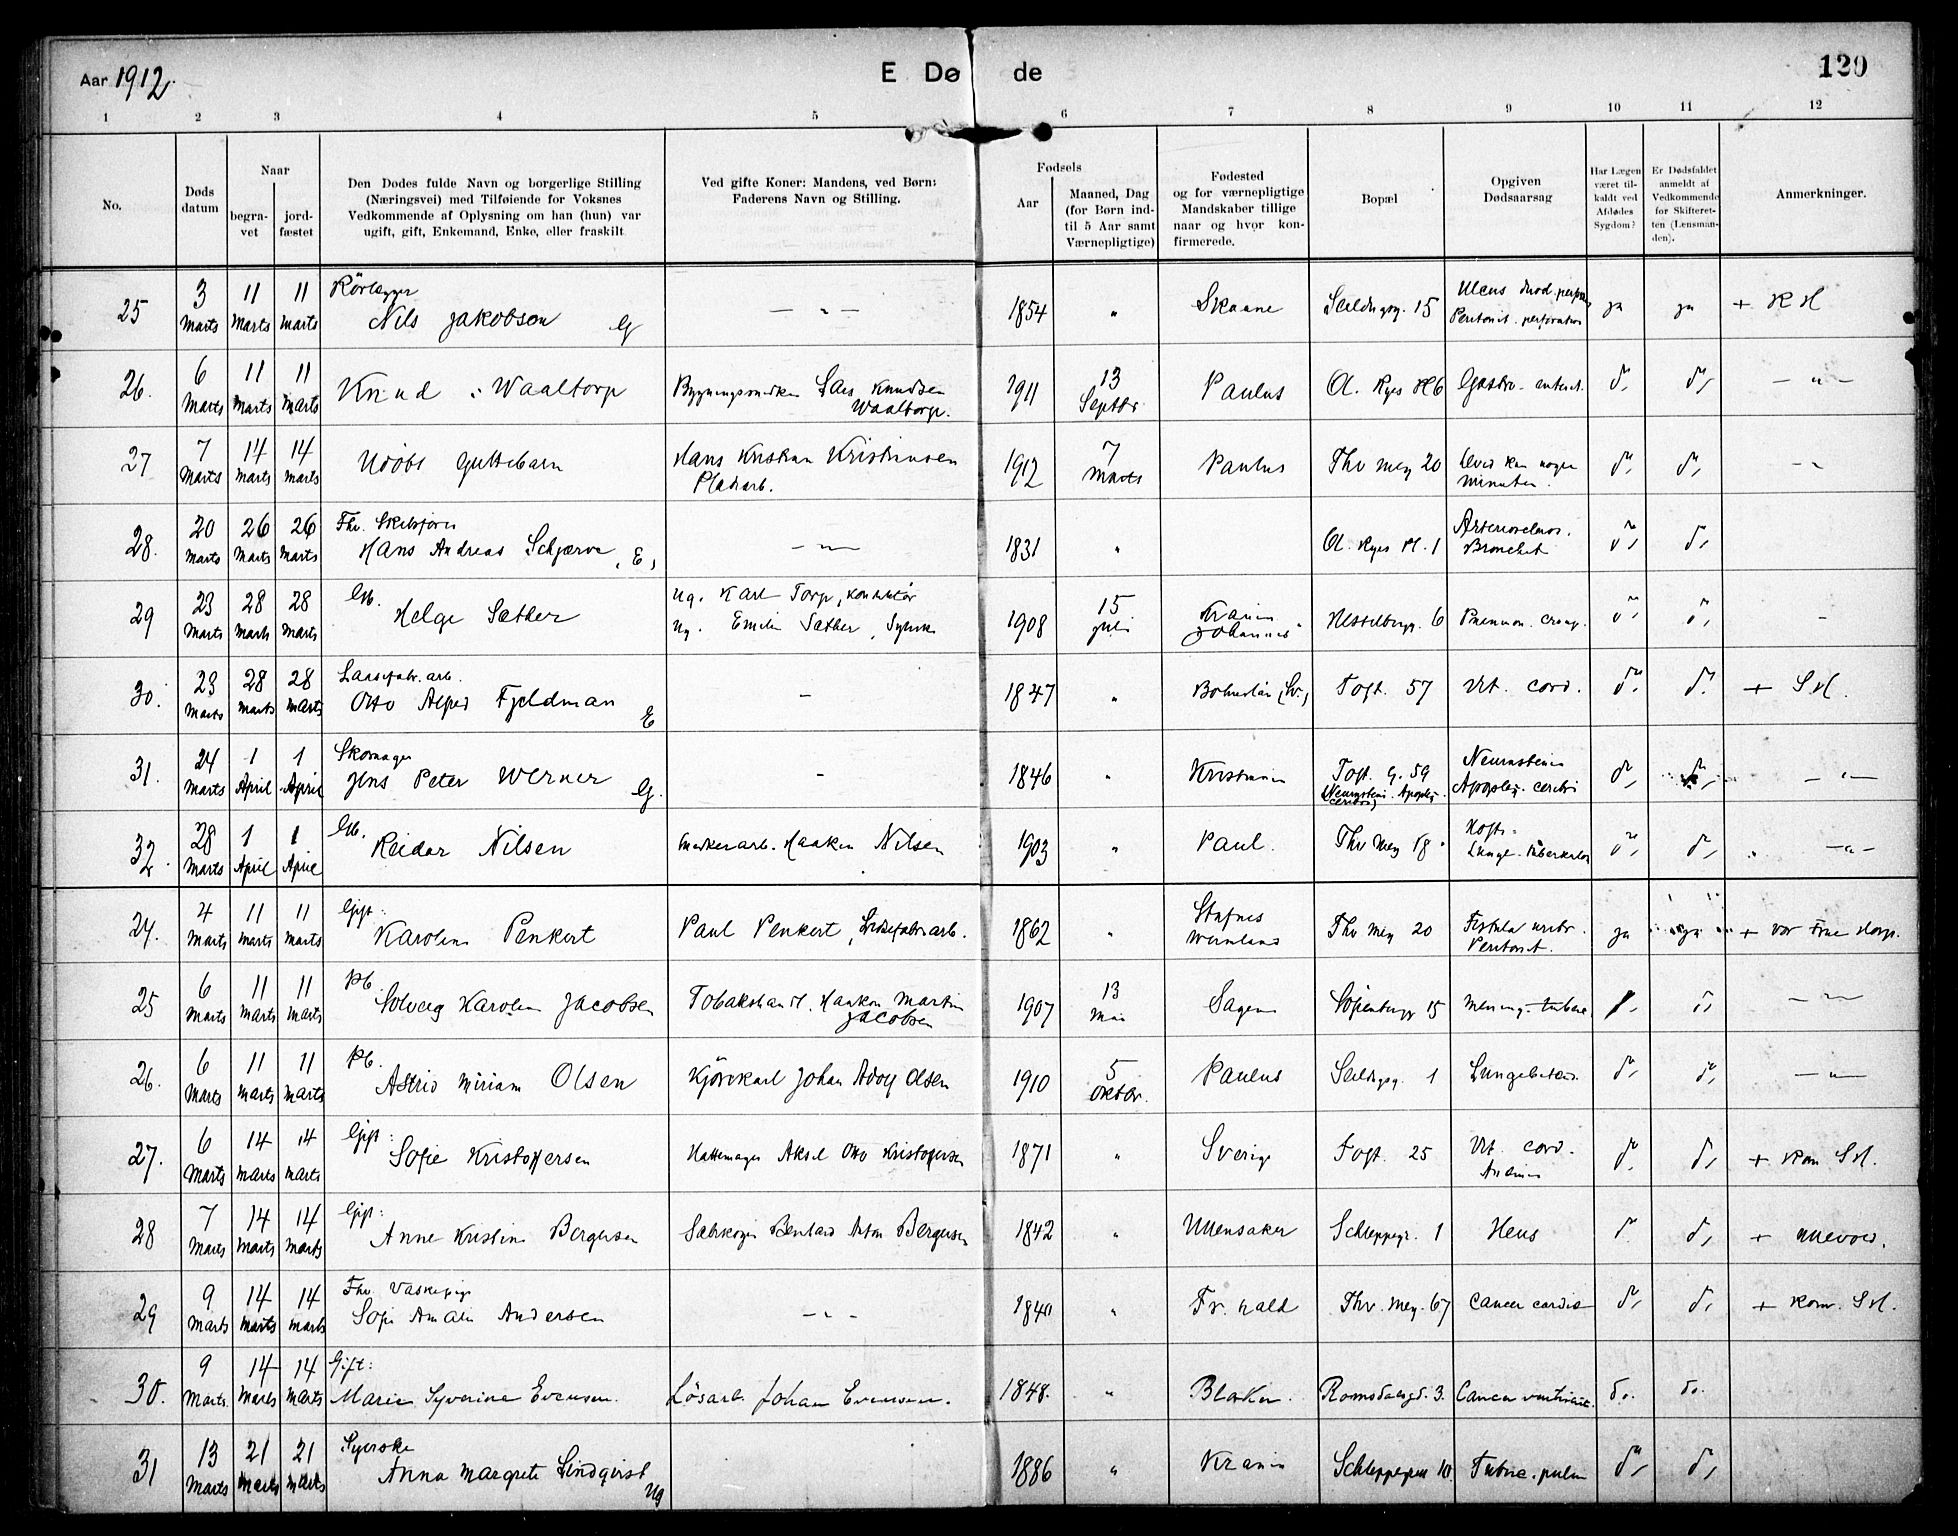 Aar 1912.
E Dø de
129
1 2 3 4 5 6 7 8 9 10 11 12
No.
Døds datum
Naar
begra-vet
jord-fæstet
Den Dødes fulde Navn og borgerlige Stilling
(Næringsvei) med Tilføiende for Voksnes
Vedkommende af Oplysning om han (hun) var
ugift, gift, Enkemand, Enke, eller fraskilt.
Ved gifte Koner: Mandens, ved Børn:
Faderens Navn og Stilling.
Fødsels
Aar
Maaned, Dag
(for Børn ind-
til 5 Aar samt
Værnepligtige)
Fødested
og for værnepligtige
Mandskaber tillige
naar og hvor kon-
firmerede.
Bopæl
Opgiven
Dødsaarsag
Har Lægen
været til-
kaldt ved
Afdødes
Sygdom?
Er Dødsfaldet
anmeldt af
Vedkommende
for Skifteret-
ten (Lensman-
den).
Anmerkninger.
25 3 Marts 11 Marts 11 Marts Rörlægger
Nils Jakobson G — " — 1854 " Skaane Seildugsg. 15 Ulcus duod. perfor.
Peritonit. perforation ja ja +
26. 6 Marts 11 Marts 11 Marts Knud Waaltorp Bygningssnedker Lars Knudsen
Waaltorp. 1911 13 Septbr Paulus Ol. Ryes Pl 6 Gastro-enterit. do do — " —
27 7 Marts 14 Marts 14 Marts Udöbt Guttebarn Hans Kristian Kristiansen
Pladsarb. 1912 7 Marts Paulus Thv Mey 20 Leved kun nogen
minuter. do do — "
28. 20 Marts 26 Marts 26 Marts Fhv. Skibsförer
Hans Andreas Schjerve E. — " — 1831 " Ol. Ryes Pl. 1 Arterioscleros.
Bronchit do do
29 23 Marts 28 Marts 28 Marts Gb.
Helge Sæther Ug. Karl Torp, Konduktör
Ug. Emilie Sæther, Syerske 1908 15 Juli Krania
Johannes Hesselbergg. 6 Pneumon. croup. do do -
30. 23 Marts 28 Marts 28 Marts Laasefabr. arb.
Otto Alfred Fjeldman E - 1847 " Bohuslän (Sv.) Toft. 57 Vit. cord. do do +
31. 24 Marts 1 April 1 April Skomager
Jens Peter Werner G. - 1846 " Kristiania Toft. G. 59
(Neurasteni. Apoplex.
cerebri) Neurasteni
Apoplex. cerebri do do — " —
32. 28 Marts 1 April 1 April Gb.
Reidar Nilsen Haakon Nilsen 1903 " Paul. Thv Mey 18 Hofte-
Lunge-tuberkulos do do — " —
24. 4 Marts 11 Marts 11 Marts Gift:
Karoline Penkert Paul Penkert, 1862 " Wermland Thv Mey 20 Fistula
Peritonit. ja ja + Vor Frue Hosp.
25 6 Marts 11 Marts 11 Marts Pb.
Solveig Karoline Jacobsen Tobakshandl. Haakon Martin
Jacobsen 1907 13 Mai Sagene Sofienbergg 15 Mening. tuberc. do — " —
26. 6 Marts 11 Marts 11 Marts Pb.
Astrid Miriam Olsen Kjörekarl Johan Adolf Olsen 1910 5 Oktbr. Paulus Seildugsg. 1 Lungebetænd. do do — " —
27. 6 Marts 14 Marts 14 Marts Gift:
Sofie Kristoffersen Hattemager Aksel Otto Kristoffersen 1871 " Sverige Toft. 25 Vit. cord. do do + Kom
28 7 Marts 14 Marts 14 Marts Gift:
Anne Kristine Bergersen Sæbekoger Bernhard Anton Bergersen 1842 " Ullensaker Schleppegr. 1 Ileus do do + Ullevold.
29 9 Marts 14 Marts 14 Marts Fhv. Vaskepige
Sofie Amalie Andersen — " — 1840 " Fr. hald Thv. Mey. 67 Cancer cardiæ do do + Kom.
30. 9 Marts 14 Marts 14 Marts Gift:
Marie Syverine Evensen. Lösarb. Johan Evensen. 1848. " Blaker. Romsdalsgd. 3. Cancer ventriculi. do. do.
31 13 Marts 21 Marts 21 Marts Syerske
Anna Margrete Lindqvist Ug 1886 " Krania Schleppegrell 10 Tuberc. pulm do do